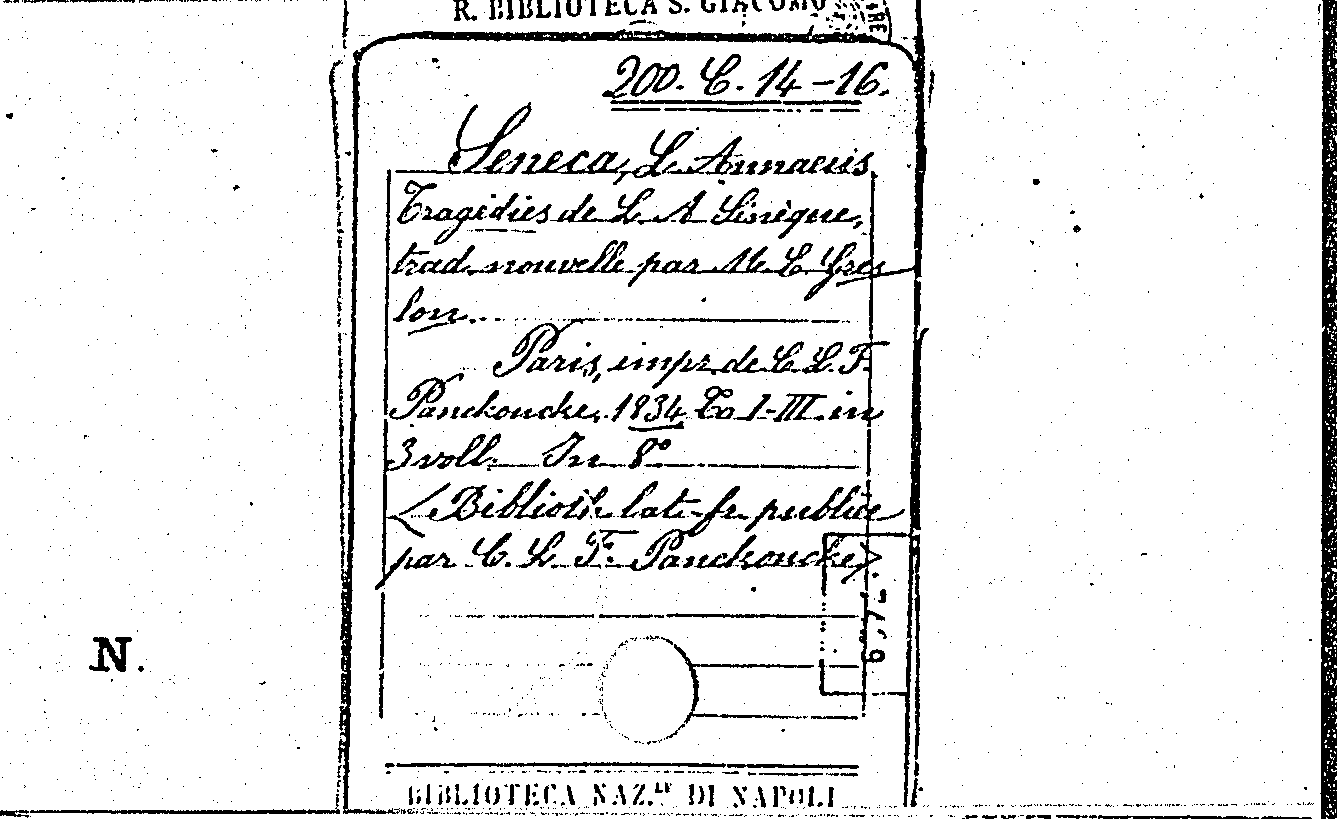 R. BIBLIOTECA S. GIACOMO
200. C. 14-16.
Seneca, L. Annaeus
Tragédies de L. A. Sénèque,
trad. nouvelle par M. E. Gres
lon.
Paris, impr. de C. L. F.
Panckoucke, 1834. To. I-III in
3 voll. In 8°
(Biblioth. lat.-fr. publiée
par C. L. F. Panckoucke).
N.
BIBLIOTECA NAZ.LE DI NAPOLI